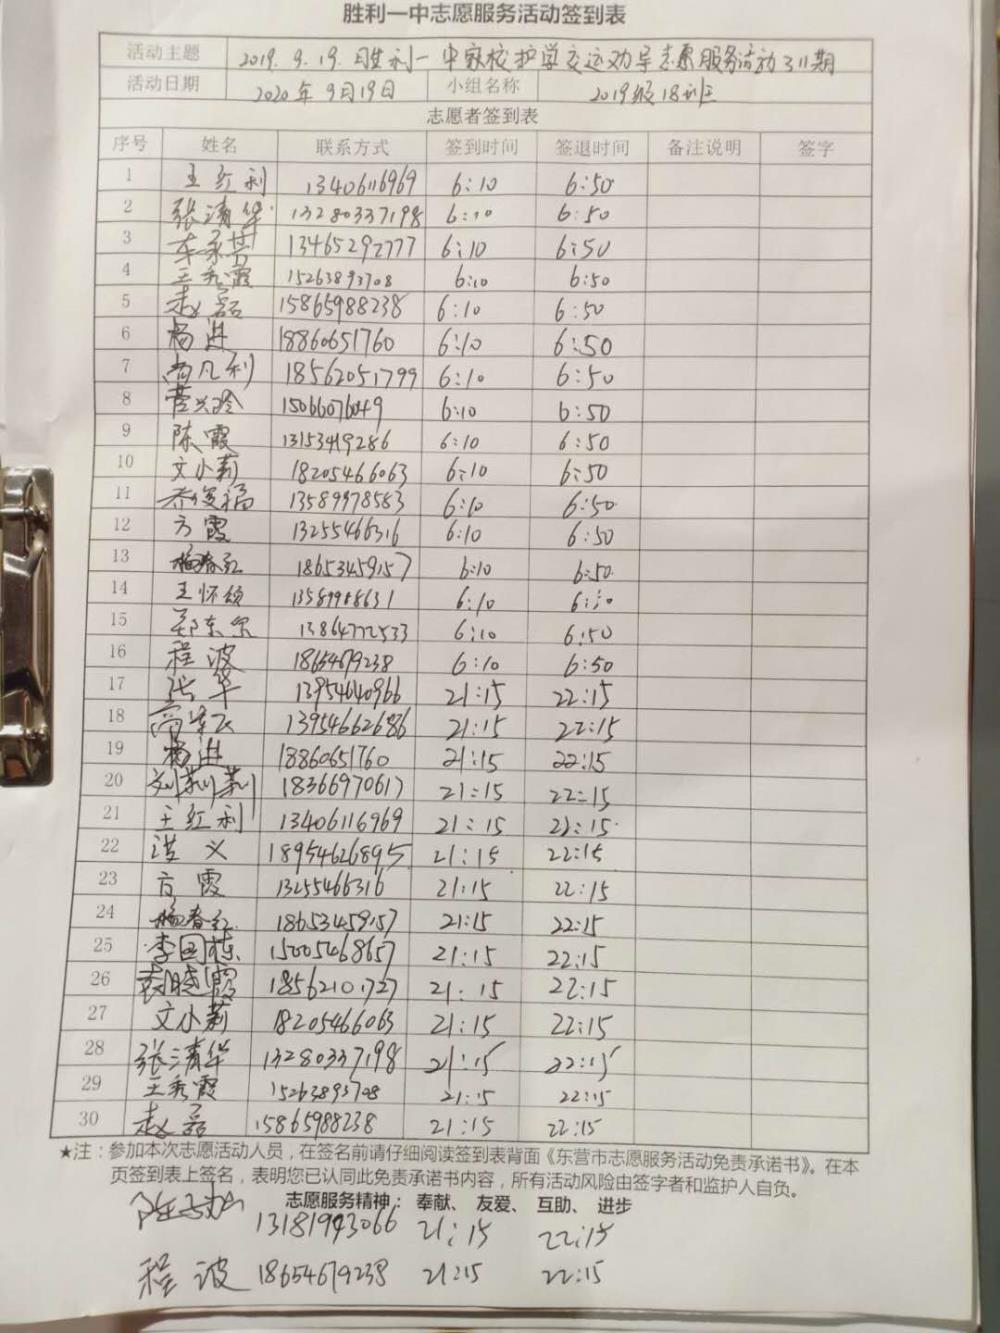 胜利一中志愿服务活动签到表
活动主题 2019.9.19.胜利一中家校护学交运劝导志愿服务活动311期
活动日期 2020年9月19日 小组名称 2019级18班
志愿者签到表
序号 姓名 联系方式 签到时间 签退时间 备注说明 签字
1 王红利 13406116969 6:10 6:50
2 张清华 13280337198 6:10 6:50
3 13465292777 6:10 6:50
4 王秀霞 15263893708 6:10 6:50
5 赵磊 15865988238 6:10 6:50
6 杨进 18860651760 6:10 6:50
7 尚凡利 18562051799 6:10 6:50
8 15066076049 6:10 6:50
9 陈霞 13153419286 6:10 6:50
10 文小莉 18205466063 6:10 6:50
11 13589978583 6:10 6:50
12 方霞 13255466316 6:10 6:50
13 杨春红 18653459157 6:10 6:50
14 王怀颂 13589988631 6:10
15 郑东泉 13864772533 6:10 6:50
16 程波 18654679238 6:10 6:50
17 张华 13954640966 21:15 22:15
18 13954662686 21:15 22:15
19 杨进 18860651760 21:15 22:15
20 刘莉莉 18366970617 21:15 22:15
21 王红利 13406116969 21:15 22:15
22 洪义 18954626895 21:15 22:15
23 方霞 13255466316 21:15 22:15
24 杨春红 18653459157 21:15 22:15
25 李国栋 15005468657 21:15 22:15
26 袁晓霞 18562101727 21:15 22:15
27 文小莉 18205466063 21:15 22:15
28 张清华 13280337198 21:15 22:15
29 王秀霞 15263893708 21:15 22:15
30 赵磊 15865988238 21:15 22:15
★注：参加本次志愿活动人员，在签名前请仔细阅读签到表背面《东营市志愿服务活动免责承诺书》。在本
页签到表上签名，表明您已认同此免责承诺书内容，所有活动风险由签字者和监护人自负。
志愿服务精神：奉献、友爱、互助、进步
13181943066 21:15 22:15
程波 18654679238 21:15 22:15